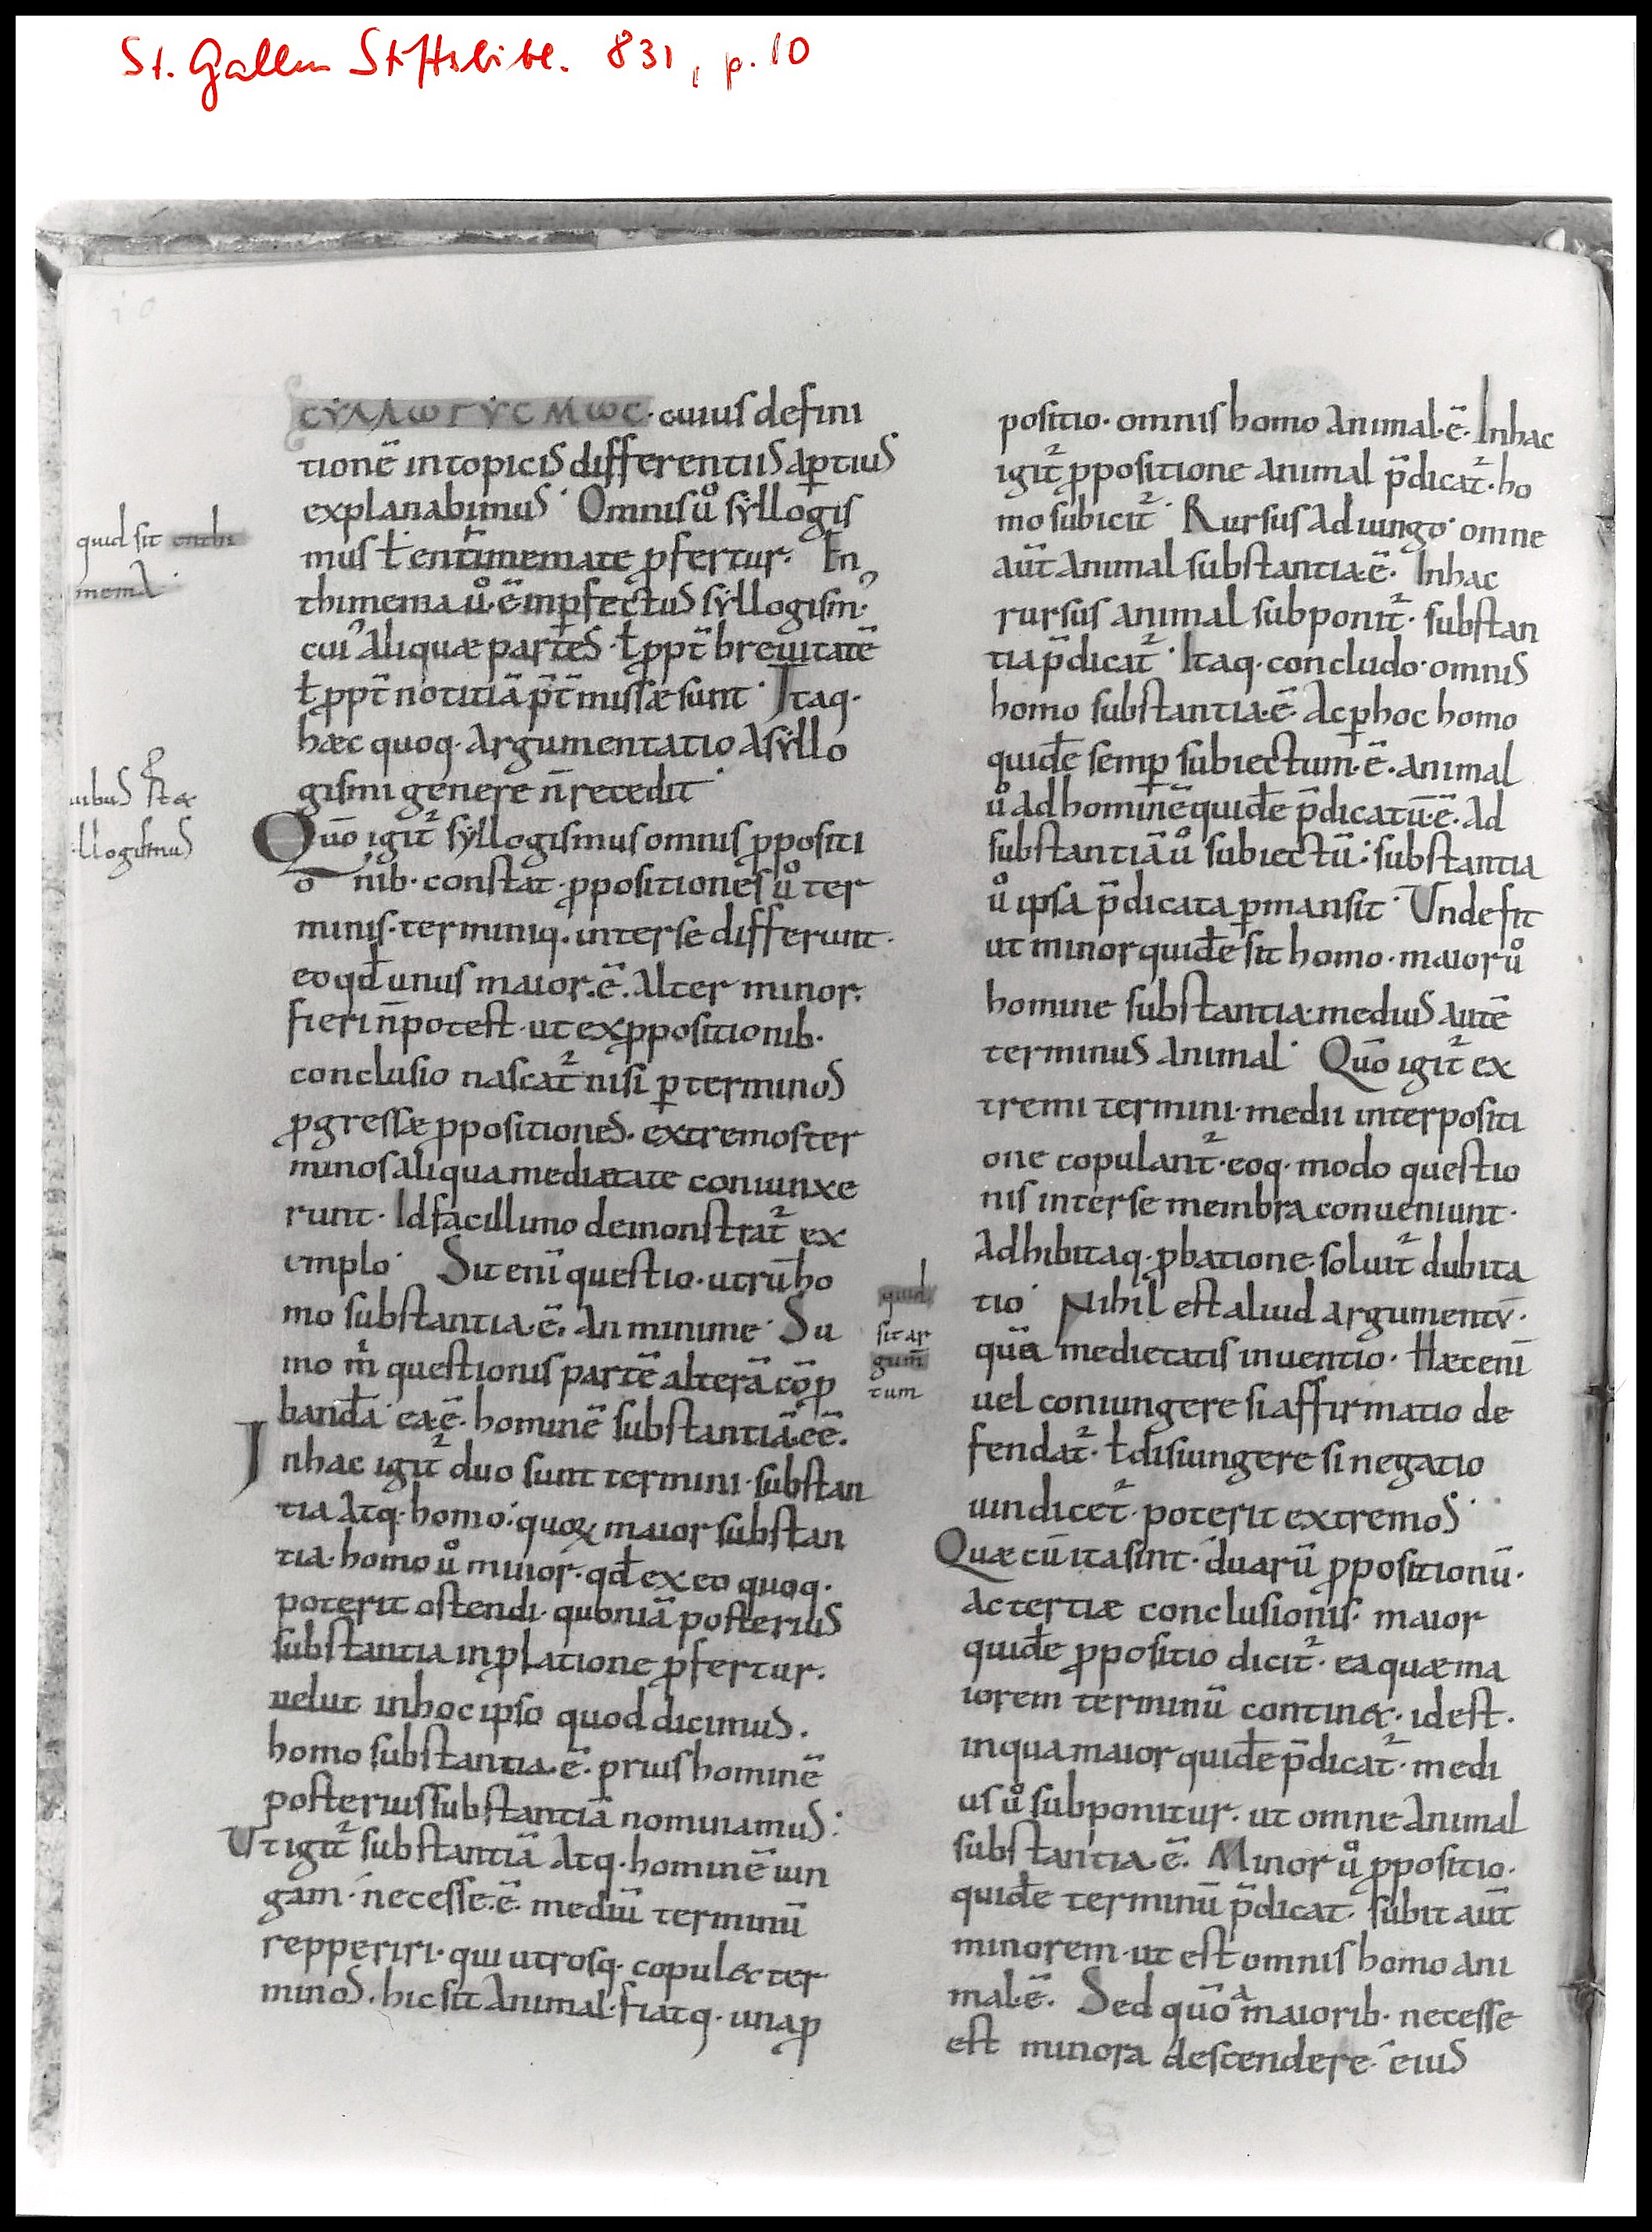 St. Gallen Stiftsbibl. 831, p. 10
10
CΥΛΛωΓΥCΜωC · cuius defini
tionē in topicis differentiis aꝑtius
explanabimus · Omnis uͦ syllogis
quid sit enthi
mus ł entimemate ꝓfertur · En
mema ·
thimema uͦ · ē inꝑfectus syllogism᾽ ·
cui᾽ aliquæ partes · ł ꝓpt̄ breuitatē
ł ꝓpt̄ notitiā p̄t̄missæ sunt · Itaq·
hæc quoq· argumentatio a syllo
gismi genere n̄ recedit ·
llogismus
Quō igit² syllogismus omnis ꝓpositi
o nib· constat · ꝓpositiones uͦ ter
minis · terminiq· inter se differunt ·
eo qđ unus maior · ē · alter minor ·
fieri n̄ potest · ut ex ꝓpositionib·
conclusio nascat² nisi ꝑ terminos
ꝓgressæ ꝓpositiones · extremos ter
minos aliqua medietate coniunxe
runt · Id facillimo demonstrat² ex
emplo · Sit enī questio · utrū ho
mo substantia · ē · an minime · Su
mo mͥ questionis partē alterā cōꝓ
banđa · ea · ē · hominē substantiā · ēē ·
In hac igit² duo sunt termini · substan
tia atq· homo · quoꝝ maior substan
tia · homo uͦ minor · qđ ex eo quoq·
poterit ostendi · quoniā posterius
substantia in ꝓlatione ꝓfertur ·
uelut in hoc ipso quod dicimus ·
homo substantia · ē · prius hominē
posterius substantiā nominamus :
Ut igit² substantiā atq· hominē iun
gam · necesse · ē · mediū terminū
repperiri · qui utrosq· copulet ter
minos · hic sit animal · fiatq· una ꝓ
positio · omnis homo animal · ē · In hac
igit² ꝓpositione animal p̄dicat² · ho
mo subicit² · Rursus adiungo · omne
aūt animal substantia · ē · In hac
rursus animal subponit² · substan
tia p̄dicat² · Itaq· concludo · omnis
homo substantia · ē · Ac ꝑ hoc homo
quiđe semꝑ subiectum · ē · animal
uͦ ad hominē quiđe p̄dicatū · ē · ad
substantiā uͦ subiectū : substantia
uͦ ipsa p̄dicata ꝑmansit · Unde fit
ut minor quiđe sit homo · maior uͦ
homine substantia · medius autē
terminus animal · Quō igit² ex
tremi termini · medii interpositi
one copulant² · eoq· modo questio
nis inter se membra conueniunt ·
adhibitaq· ꝓbatione · soluit² dubita
quid
sit ar
gum̄
tum
tio · Nihil est aliud argumentū ·
quā medietatis inuentio · Hæc enī
uel coniungere si affirmatio de
fendat² · ł disiungere si negatio
uindicet² · poterit extremos ·
Quæ cū ita sint · duarū ꝓpositionū ·
ac tertiæ conclusionis · maior
quiđe ꝓpositio dicit² · ea quæ ma
iorem terminū continet · id est ·
in qua maior quiđe p̄dicat² · medi
us uͦ subponitur · ut omne animal
substantia · ē · Minor uͦ ꝓpositio ·
quiđe terminū p̄dicat · subit aūt
minorem · ut est omnis homo ani
mal · ē · Sed quō a maiorib· necesse
est minora descendere · eius